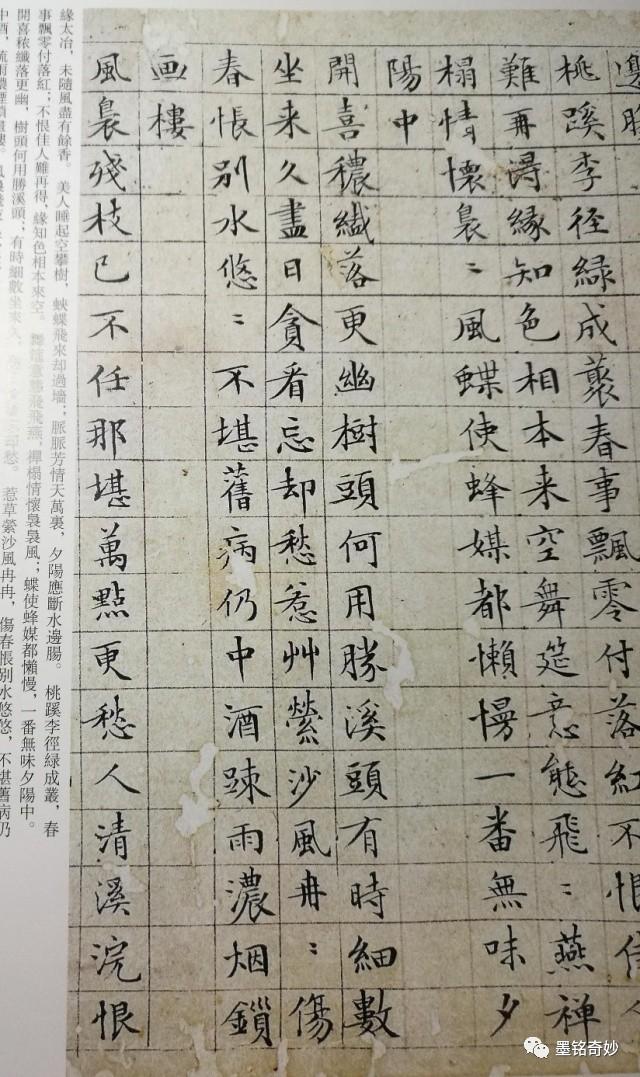 邊腸
桃蹊李徑綠成藂春事飄零付落紅不恨佳人
難再得縁知色相本来空舞筵意態飛〻燕禅
榻情懷裊〻風蝶使蜂媒都懶慢一番無味夕
陽中
開喜穠纖落更幽樹頭何用勝溪頭有時細數
坐来久盡日貪看忘却愁惹艸縈沙風冉〻傷
春悵别水悠〻不堪舊病仍中酒踈雨濃烟鎖
画樓
風裊殘枝已不任那堪萬點更愁人清溪浣恨
緣太冶，未隨風盡有餘香。 美人睡起空攀樹，蛺蝶飛來却過墻；脈脈芳情天萬裏，夕陽應斷水邊腸。 桃蹊李徑緑成叢，春
事飄零付落紅；不恨佳人難再得，緣知色相本來空。 舞筵意態飛飛燕，禪榻情懷裊裊風；蝶使蜂媒都懶慢，一番無味夕陽中。
開喜穠纖落更幽，樹頭何用勝溪頭；有時細數坐來久，却愁。 惹草縈沙風冉冉，傷春悵别水悠悠，不堪舊病仍
中酒，疏雨濃煙鎖畫樓。
墨铭奇妙